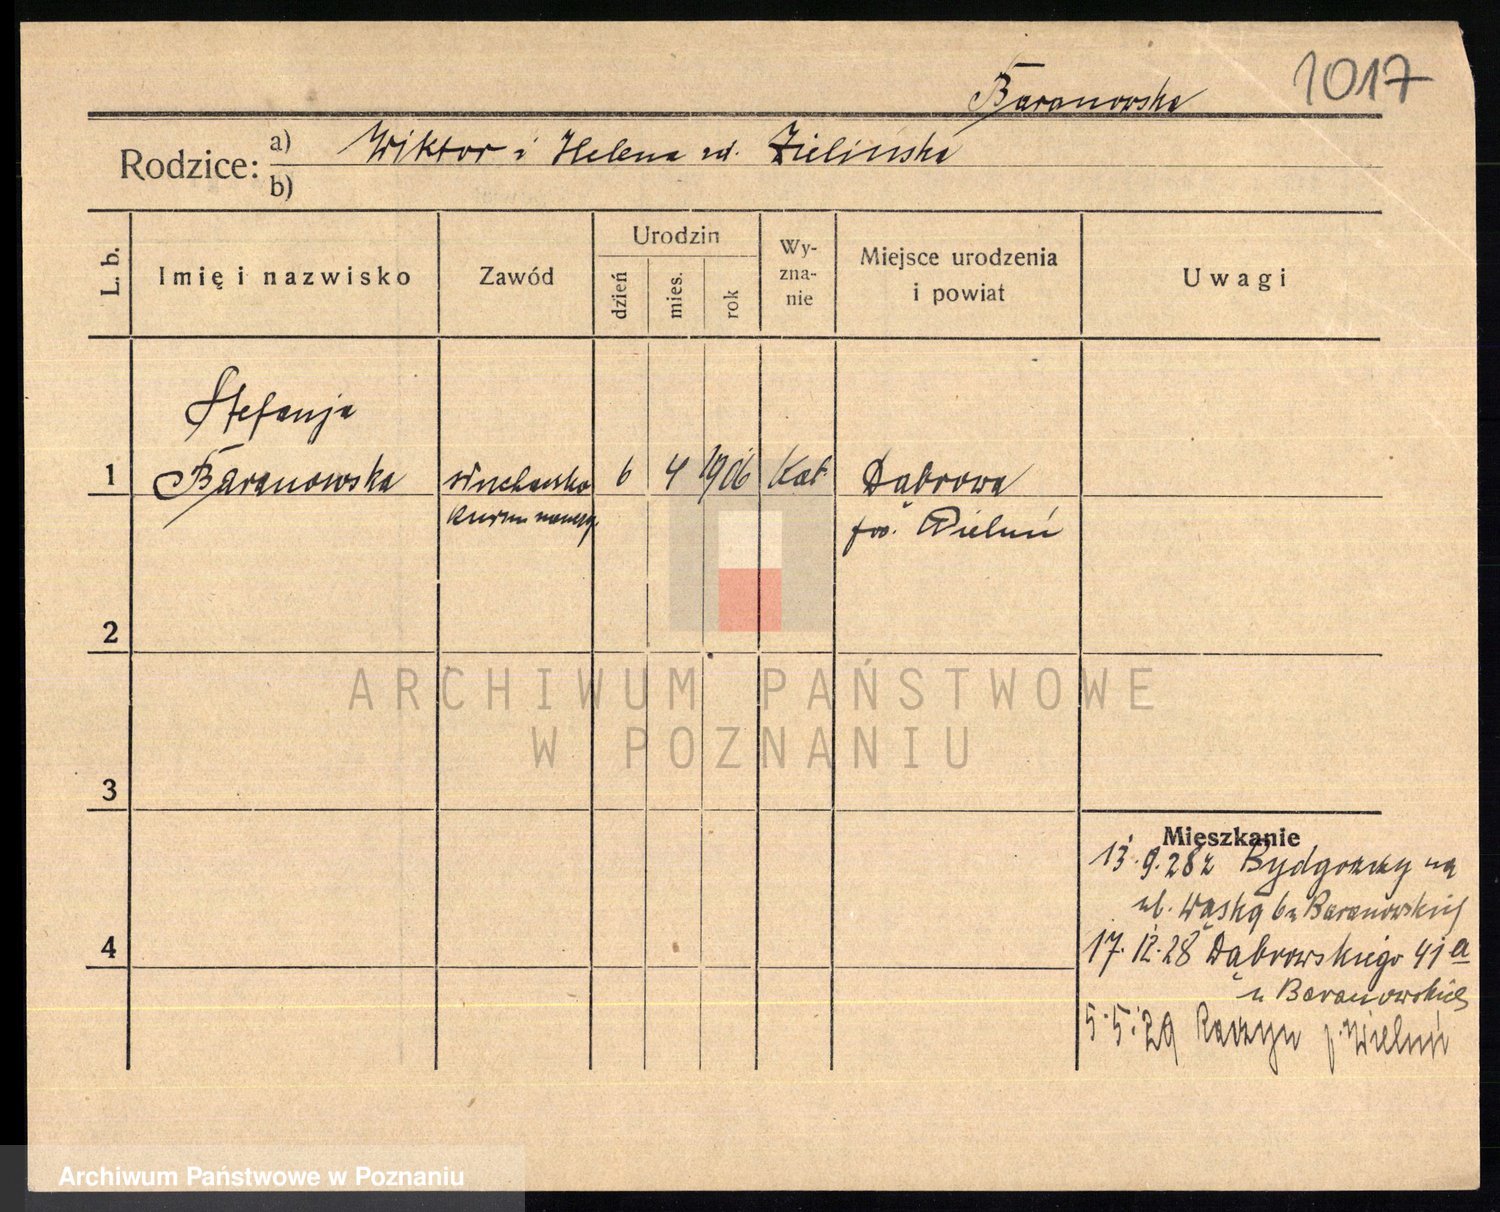 1017
Baranowska
Rodzice: a) Wiktor i Helena zd. Zielińska
b)
L. b.
Imię i nazwisko
Zawód
Urodzin
dzień
mies.
rok
Wy-
zna-
nie
Miejsce urodzenia
i powiat
Uwagi
Stefanja
1 Baranowska słuchaczka 6 4 1906 Kat Dąbrowa
kursu pow. Wieluń
2
3
4
ARCHIWUM PAŃSTWOWE
W POZNANIU
Mieszkanie
13.9.28 z Bydgoszczy na
ul. Wąską 6 u Baranowskiej
17.12.28 Dąbrowskiego 41a
u Baranowskiej
5.5.29 Raczyn p. Wieluń
Archiwum Państwowe w Poznaniu